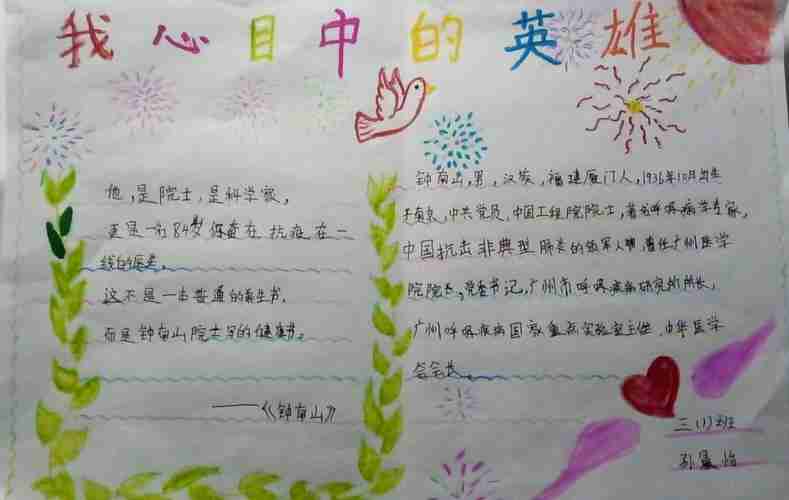 我心目中的英雄
他,是院士,是科学家,
更是一位84岁仍奋在抗疫在一
线的医生。
这不是一本普通的养生书,
而是钟南山院士写的健康书。
——《钟南山》
钟南山,男,汉族,福建厦门人,1936年10月出生
于南京,中共党员,中国工程院院士,著名呼吸病学专家,
中国抗击非典型肺炎的领军人物,曾任广州医学
院院长,党委书记,广州市呼吸疾病研究所所长,
广州呼吸疾病国家重点实验室主任,中华医学
会会长。
三(1)班
孙
怡